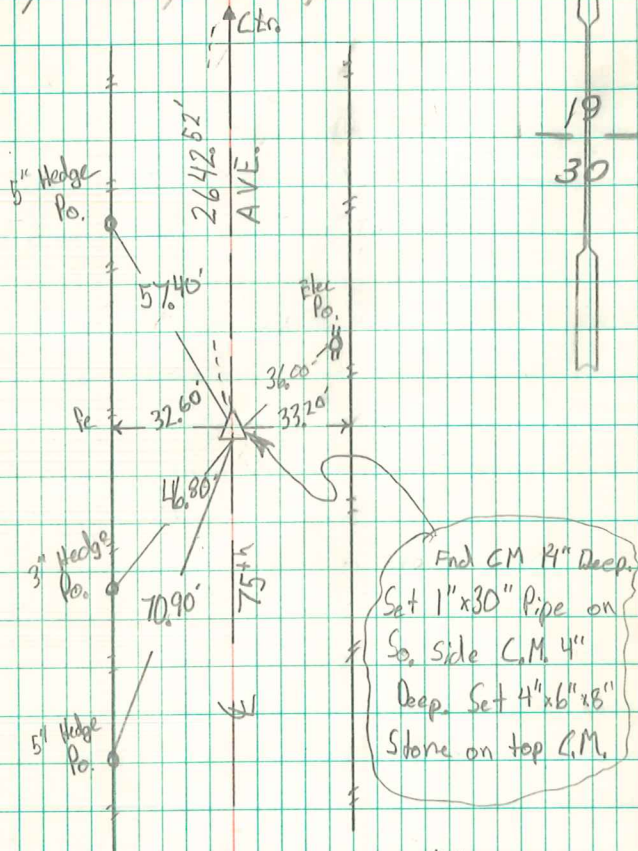 Ctr.
2642.52'
AVE.
19
30
5" Hedge
Po.
57.40'
Elec
Po.
36.00'
fe
32.60'
33.20'
46.80'
3" Hedge
Po.
70.90'
75th
℄
5" Hedge
Po.
Fnd CM 14" Deep.
Set 1"x30" Pipe on
So. Side C.M. 4"
Deep. Set 4"x6"x8"
Stone on top C.M.